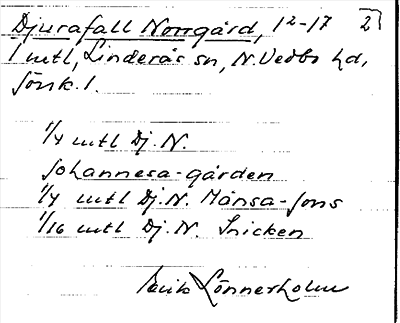 Djurafall Norrgård, 1²-17 2]
1 mtl, Linderås sn, N. Vedbo hd,
Jönk. l.
1/4 mtl Dj. N.
Johannesa-gården
1/4 mtl Dj. N. Månsa-Jons
1/16 mtl Dj. N. Snicken
Erik Lönnerholm